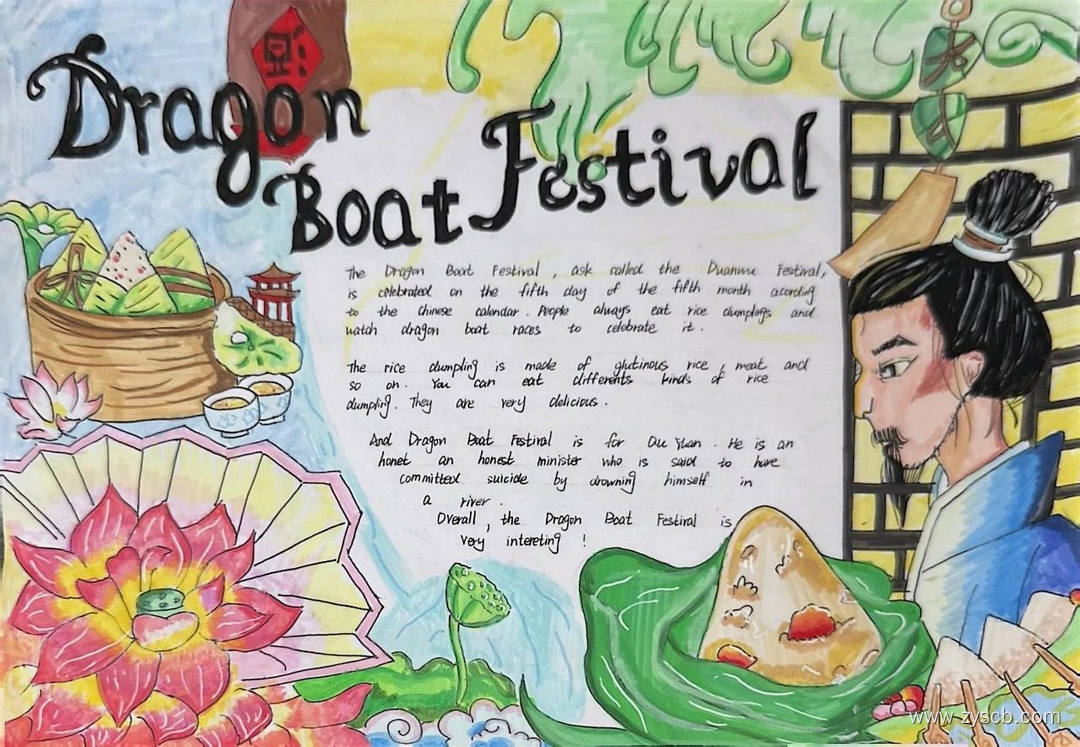 Dragon
Boat Festival
The Dragon Boat Festival , ask called the Duanwu Festival,
is celebrated on the fifth day of the fifth month acording
to the Chinese calendar . People always eat rice dumplings and
watch dragon boat races to celebrate it .
The rice dumpling is made of glutinous rice , meat and
so on. You can eat differents kinds of rice
dumpling. They are very delicious .
And Dragon Boat Festival is for Qu Yuan . He is an
honet an honest minister who is said to have
committed suicide by drowning himself in
a river .
Overall , the Dragon Boat Festival is
very intereting !
www.zyscb.com